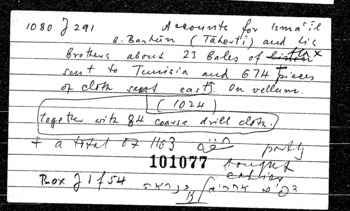 1080 J 291 Accounts for Ismāʿīl
b. Barhūn (Tāhertī) and his
brothers about 23 Bales of flax
sent to Tunisia and 674 pieces
of cloth sent east. On vellum.
(1024)
together with 84 coarse drill cloth.
+ a total of 1163 partly
101077 bought
earlier
Box J 1 f 54